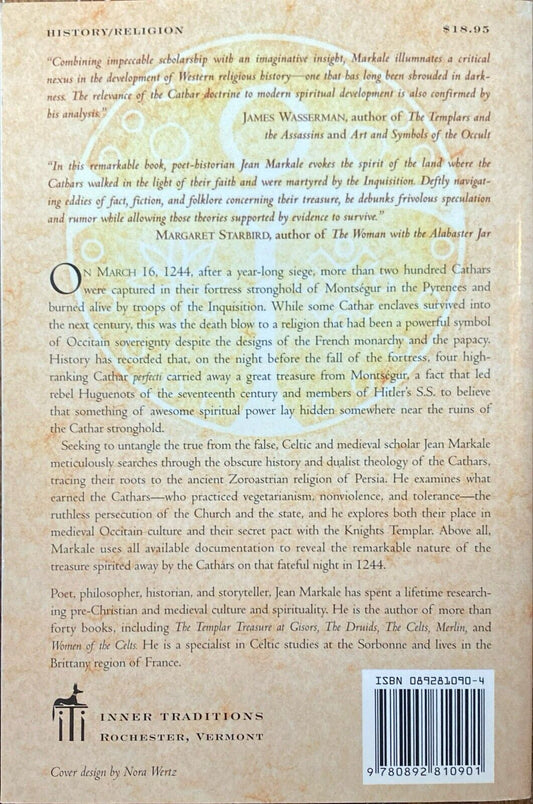 HISTORY/RELIGION $18.95
"Combining impeccable scholarship with an imaginative insight, Markale illumnates a critical
nexus in the development of Western religious history—one that has long been shrouded in dark-
ness. The relevance of the Cathar doctrine to modern spiritual development is also confirmed by
his analysis."
JAMES WASSERMAN, author of The Templars and
the Assassins and Art and Symbols of the Occult
"In this remarkable book, poet-historian Jean Markale evokes the spirit of the land where the
Cathars walked in the light of their faith and were martyred by the Inquisition. Deftly navigat-
ing eddies of fact, fiction, and folklore concerning their treasure, he debunks frivolous speculation
and rumor while allowing those theories supported by evidence to survive."
MARGARET STARBIRD, author of The Woman with the Alabaster Jar
ON MARCH 16, 1244, after a year-long siege, more than two hundred Cathars
were captured in their fortress stronghold of Montségur in the Pyrenees and
burned alive by troops of the Inquisition. While some Cathar enclaves survived into
the next century, this was the death blow to a religion that had been a powerful symbol
of Occitain sovereignty despite the designs of the French monarchy and the papacy.
History has recorded that, on the night before the fall of the fortress, four high-
ranking Cathar perfecti carried away a great treasure from Montségur, a fact that led
rebel Huguenots of the seventeenth century and members of Hitler's S.S. to believe
that something of awesome spiritual power lay hidden somewhere near the ruins of
the Cathar stronghold.
Seeking to untangle the true from the false, Celtic and medieval scholar Jean Markale
meticulously searches through the obscure history and dualist theology of the Cathars,
tracing their roots to the ancient Zoroastrian religion of Persia. He examines what
earned the Cathars—who practiced vegetarianism, nonviolence, and tolerance—the
ruthless persecution of the Church and the state, and he explores both their place in
medieval Occitain culture and their secret pact with the Knights Templar. Above all,
Markale uses all available documentation to reveal the remarkable nature of the
treasure spirited away by the Cathars on that fateful night in 1244.
Poet, philosopher, historian, and storyteller, Jean Markale has spent a lifetime research-
ing pre-Christian and medieval culture and spirituality. He is the author of more than
forty books, including The Templar Treasure at Gisors, The Druids, The Celts, Merlin, and
Women of the Celts. He is a specialist in Celtic studies at the Sorbonne and lives in the
Brittany region of France.
ISBN 089281090-4
INNER TRADITIONS
ROCHESTER, VERMONT
9 780892 810901
Cover design by Nora Wertz